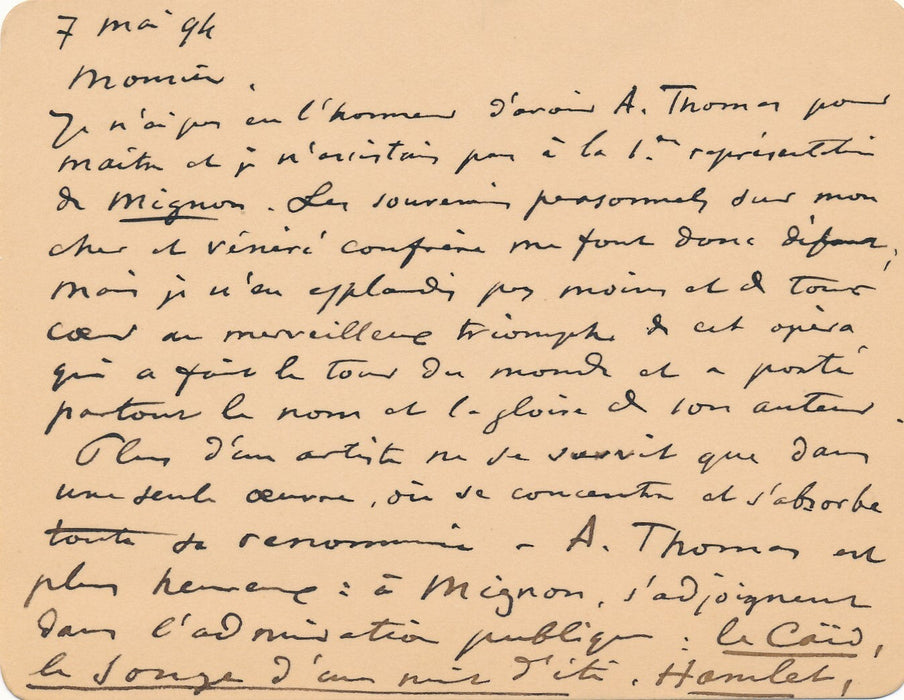 7 mai 94
Monsieur.
Je n'ai pas eu l'honneur d'avoir A. Thomas pour
maître et je n'assistais pas à la 1ère représentation
de Mignon. Les souvenirs personnels sur mon
cher et vénéré confrère me font donc défaut,
mais je n'en applaudis pas moins et de tout
cœur au merveilleux triomphe de cet opéra
qui a fait le tour du monde et a porté
partout le nom et la gloire de son auteur.
Plus d'un artiste ne se survit que dans
une seule œuvre, où se concentre et s'absorbe
toute sa renommée - A. Thomas est
plus heureux : à Mignon, s'adjoignent
dans l'admiration publique : le Caïd,
le Songe d'une nuit d'été, Hamlet,